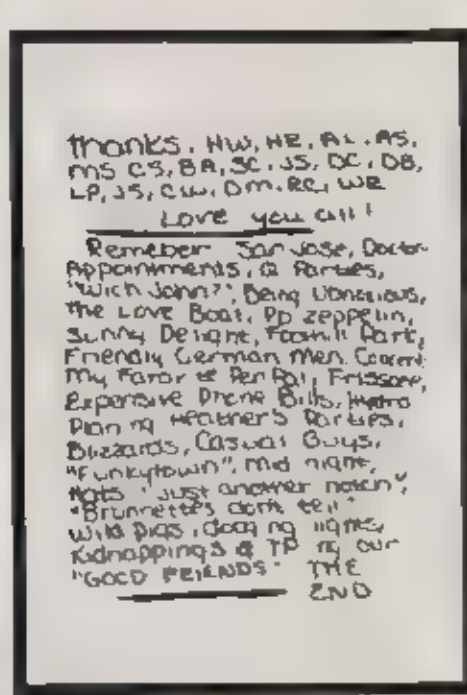 thanks, HW, HE, AL, AS,
MS CS, BA, SC, JS, DC, DB,
LP, JS, CW, DM, RC, WR
Love you all!
Remeber San Jose, Doctor
Appointments, Parties,
"Wich John?", Being
The Love Boat, zeppelin,
Sunny Delight, Foothill Park,
Friendly German Men,
My Pen Pal,
Expensive Phone Bills,
Planing Heather's Parties,
Blizzards, Casual Guys,
"Funkytown", Mid night,
"Just another notch",
"Brunnette's don't tell"
Wild Pigs, lights,
Kidnappings & TP ing our
"GOOD FRIENDS" THE
END